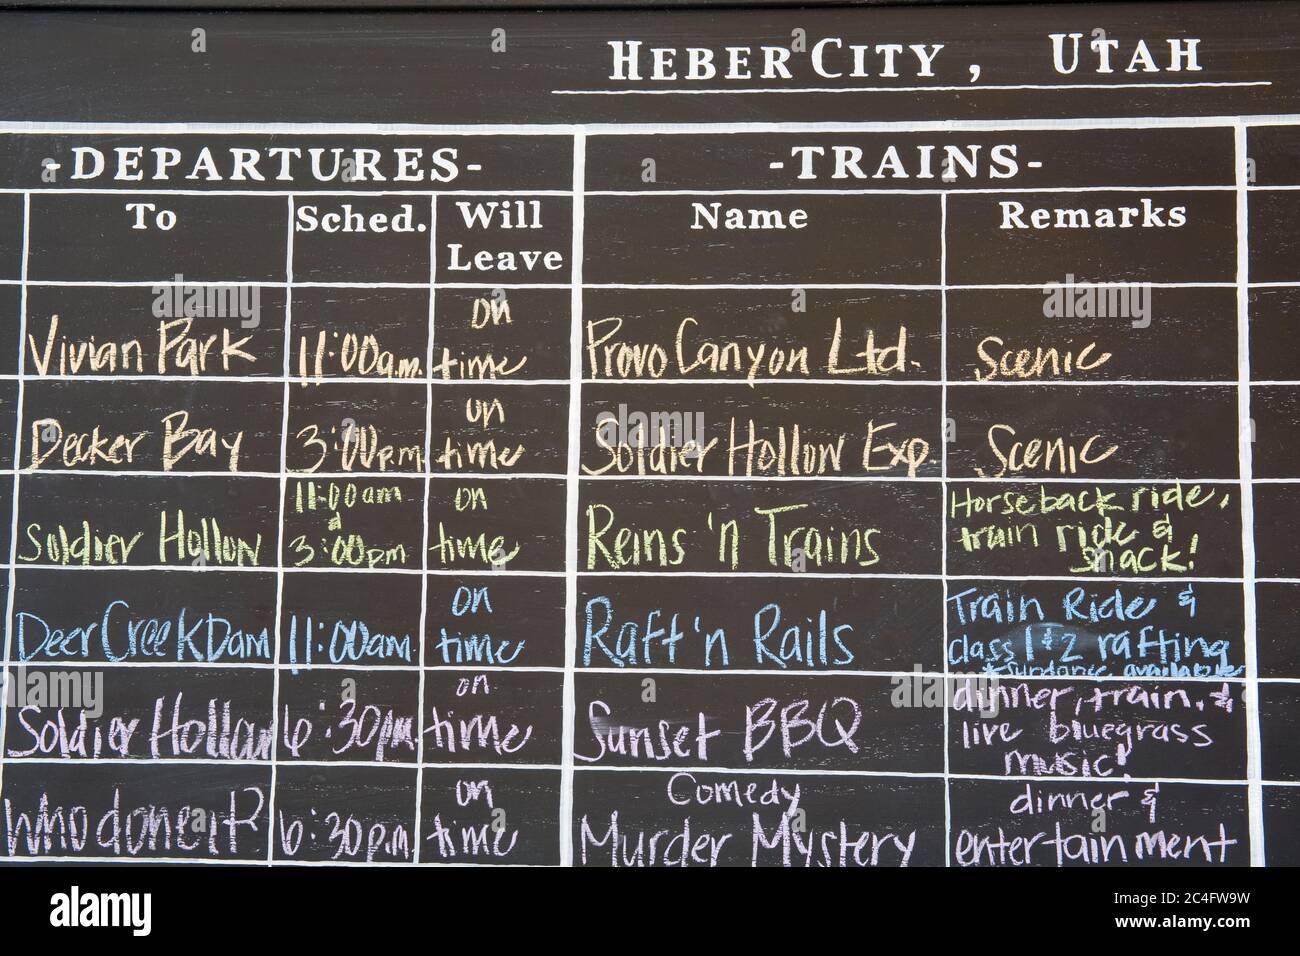 HEBER CITY, UTAH
-DEPARTURES-
-TRAINS-
To
Sched.
Will
Leave
Name
Remarks
Vivian Park
11:00a.m.
on
time
Provo Canyon Ltd.
Scenic
Decker Bay
3:00p.m.
on
time
Soldier Hollow Exp
Scenic
Soldier Hollow
11:00am
&
3:00pm
on
time
Reins 'n Trains
Horseback ride,
train ride &
snack!
Deer Creek Dam
11:00am
on
time
Raft 'n Rails
Train Ride &
class 1 & 2 rafting
*Sundance available*
Soldier Hollow
6:30pm
on
time
Sunset BBQ
dinner, train, &
live bluegrass
music!
Who done it?
6:30p.m.
on
time
Comedy
Murder Mystery
dinner &
entertainment
alamy
Image ID: 2C4FW9W
www.alamy.com